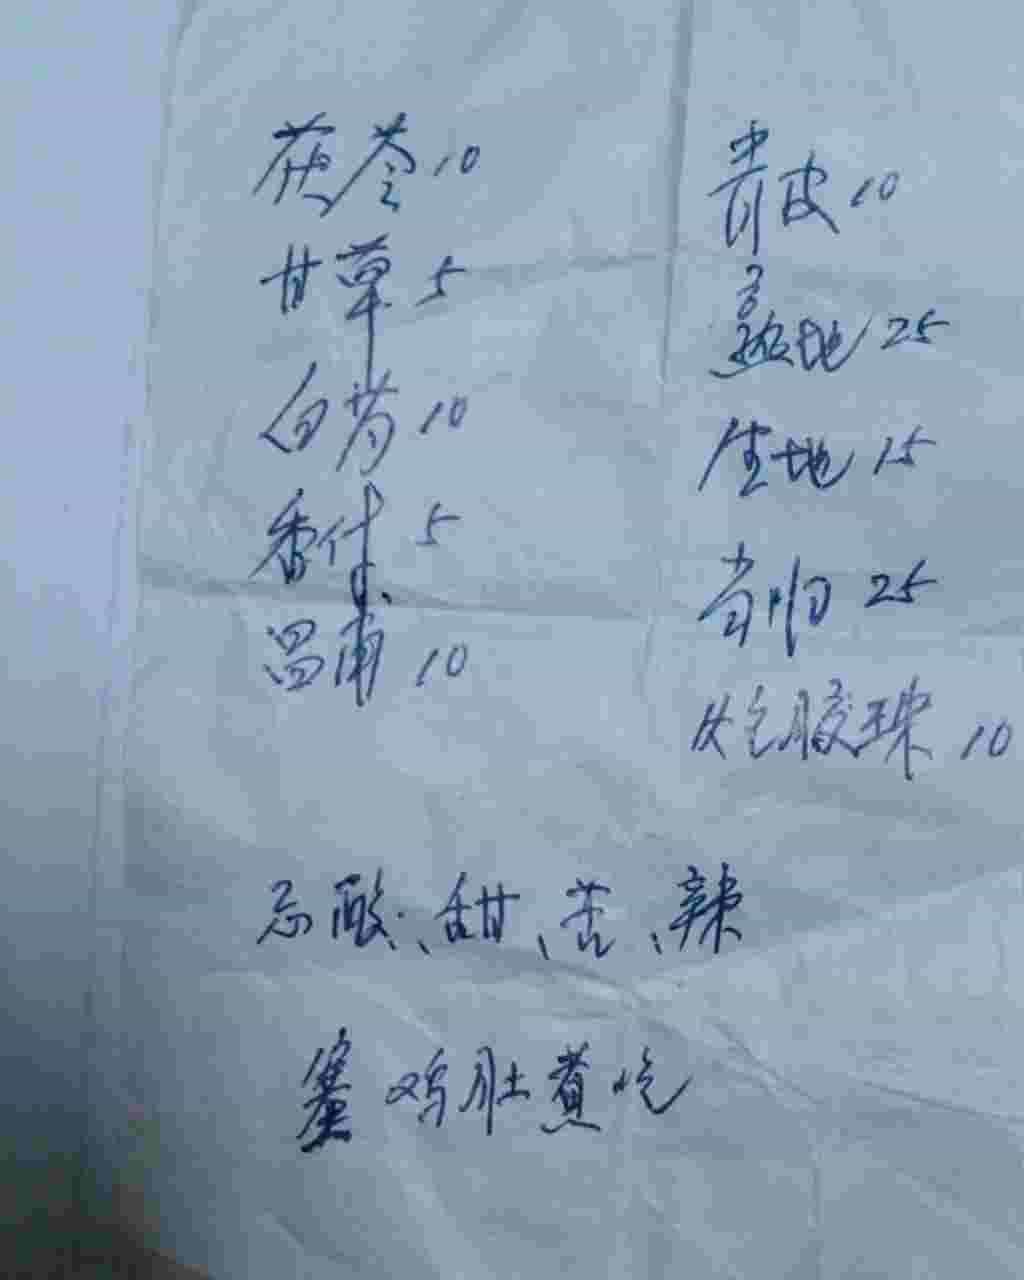 茯苓10
甘草5
白芍10
香附5
昌甫10
青皮10
熟地25
生地15
当归25
胶珠10
忌酸、甜、苦、辣
塞鸡肚煮吃